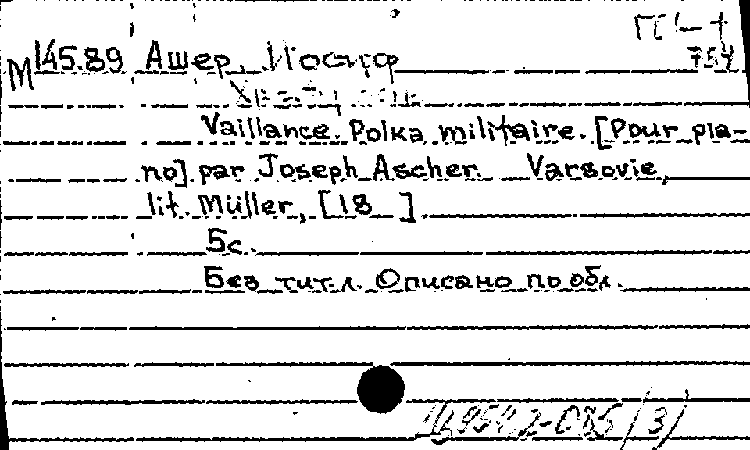 М 145.89 Ашер, Иосиф
754
Vaillance. Polka militaire. [Pour pia-
no] par Joseph Ascher. Varsovie,
lit. Müller, [18 ]
5с.
Без тит.л. Описано по обл.